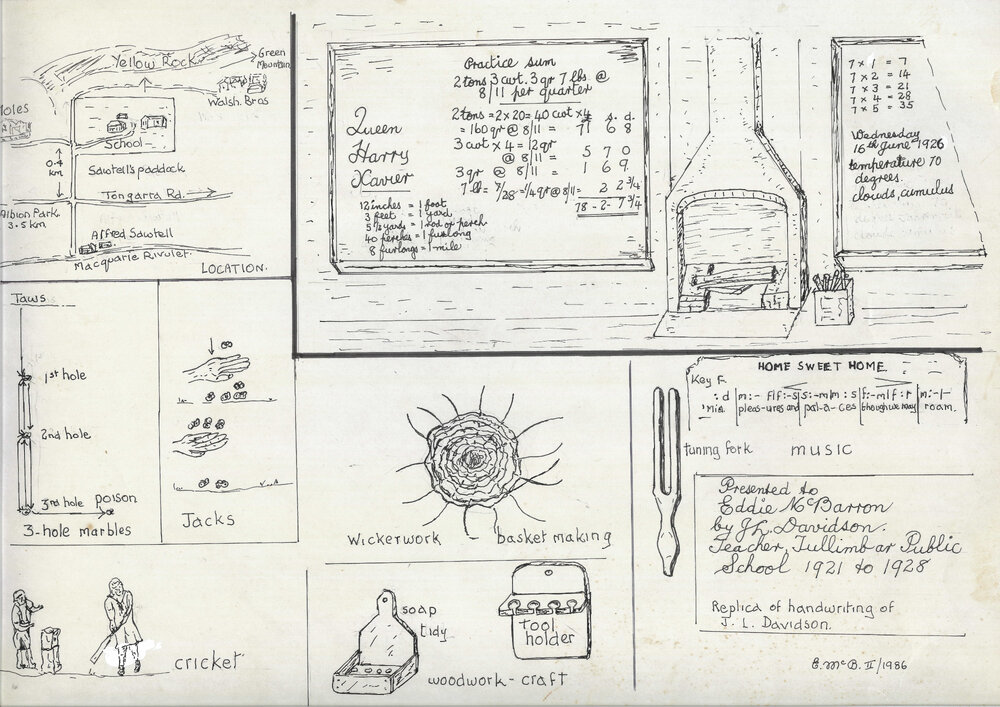 Yellow Rock
Green
Mountain
Walsh. Bros
School
0.4
km
Sawtell's paddock
Tongarra Rd.
Albion Park.
3.5 km
Alfred Sawtell
Macquarie Rivulet.
LOCATION.
Practice Sum
2 tons 3 cwt. 3 qr 7 lbs @
8/11 per quarter
2 tons = 2 x 20 = 40 cwt x 4 £ s. d.
= 160 qr @ 8/11 = 71 6 8
3 cwt x 4 = 12 qr
@ 8/11 = 5 7 0
3 qr @ 8/11 = 1 6 9
7 lb = 7/28 = 1/4 qr @ 8/11 = 2 2 3/4
78 - 2 - 7 3/4
Queen
Harry
Xavier
12 inches = 1 foot
3 feet = 1 yard
5 1/2 yards = 1 rod or perch
40 perches = 1 furlong
8 furlongs = 1 mile
7 x 1 = 7
7 x 2 = 14
7 x 3 = 21
7 x 4 = 28
7 x 5 = 35
Wednesday
16th June 1926
temperature 70
degrees.
clouds, cumulus
Taws
1st hole
2nd hole
3rd hole poison
3-hole marbles
Jacks
wickerwork basket making
HOME SWEET HOME.
Key F.
: d | m :- f | f :- s | s :- m | m : s | f :- m | f : r | m :- |-
'Mid pleas-ures and pal-a-ces though we may roam.
tuning fork music
Presented to
Eddie McBarron
by J.L. Davidson.
Teacher, Tullimbar Public
School 1921 to 1928
Replica of handwriting of
J. L. Davidson.
E. McB. II/1986
cricket
soap
tidy
tool
holder
woodwork - craft